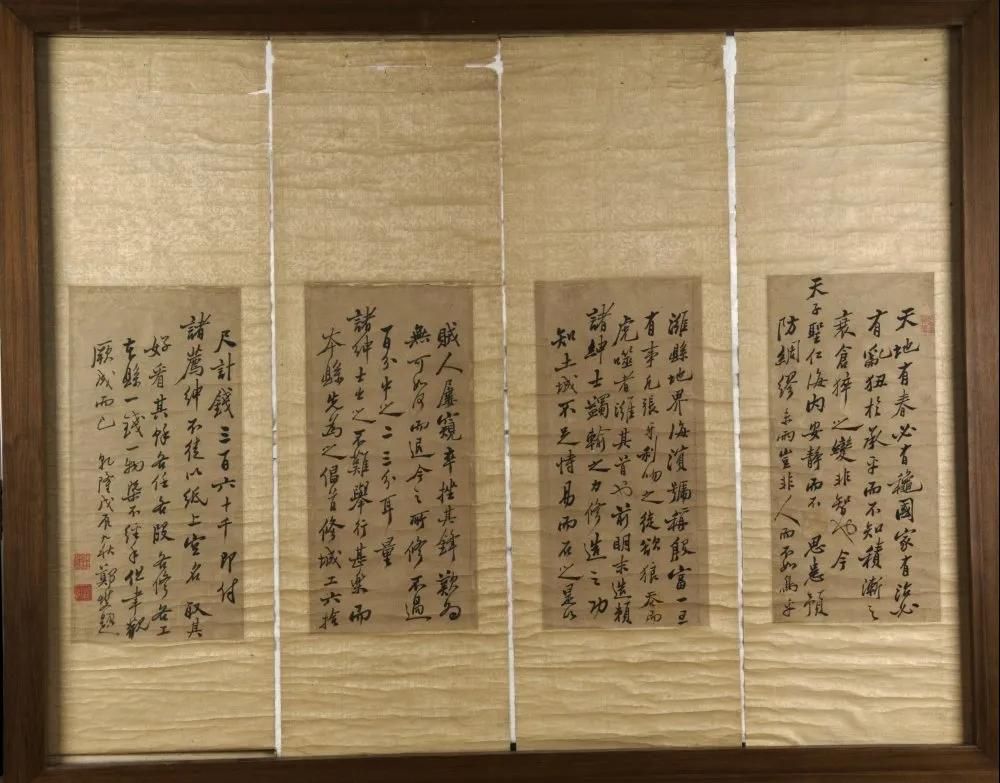 天地有春必有龝國家有治必
有亂狃於承平而不知積漸之
衰倉猝之變非智也今
天子聖仁海内安静而不思患預
防綢繆未雨豈非人而不如鳥乎
濰縣地界海濱號稱殷富一旦
有事凡張牙利吻之徒欲狼吞而
虎噬者濰其首也前明末造賴
諸紳士蠲輸之力修造之功
知土城不足恃易而石之是以
賊人屢窺卒挫其鋒歎為
無可如何而退今之所修不過
百分中之二三分耳量
諸紳士出之不難舉行甚樂而
本縣先為之倡首修城工六拾
尺計錢三百六十千即付
諸薦紳不徒以紙上空名取其
好看其餘各任各段各修各工
本縣一錢一物槩不經手但聿觀
厥成而已 乾隆戊辰九秋鄭燮題